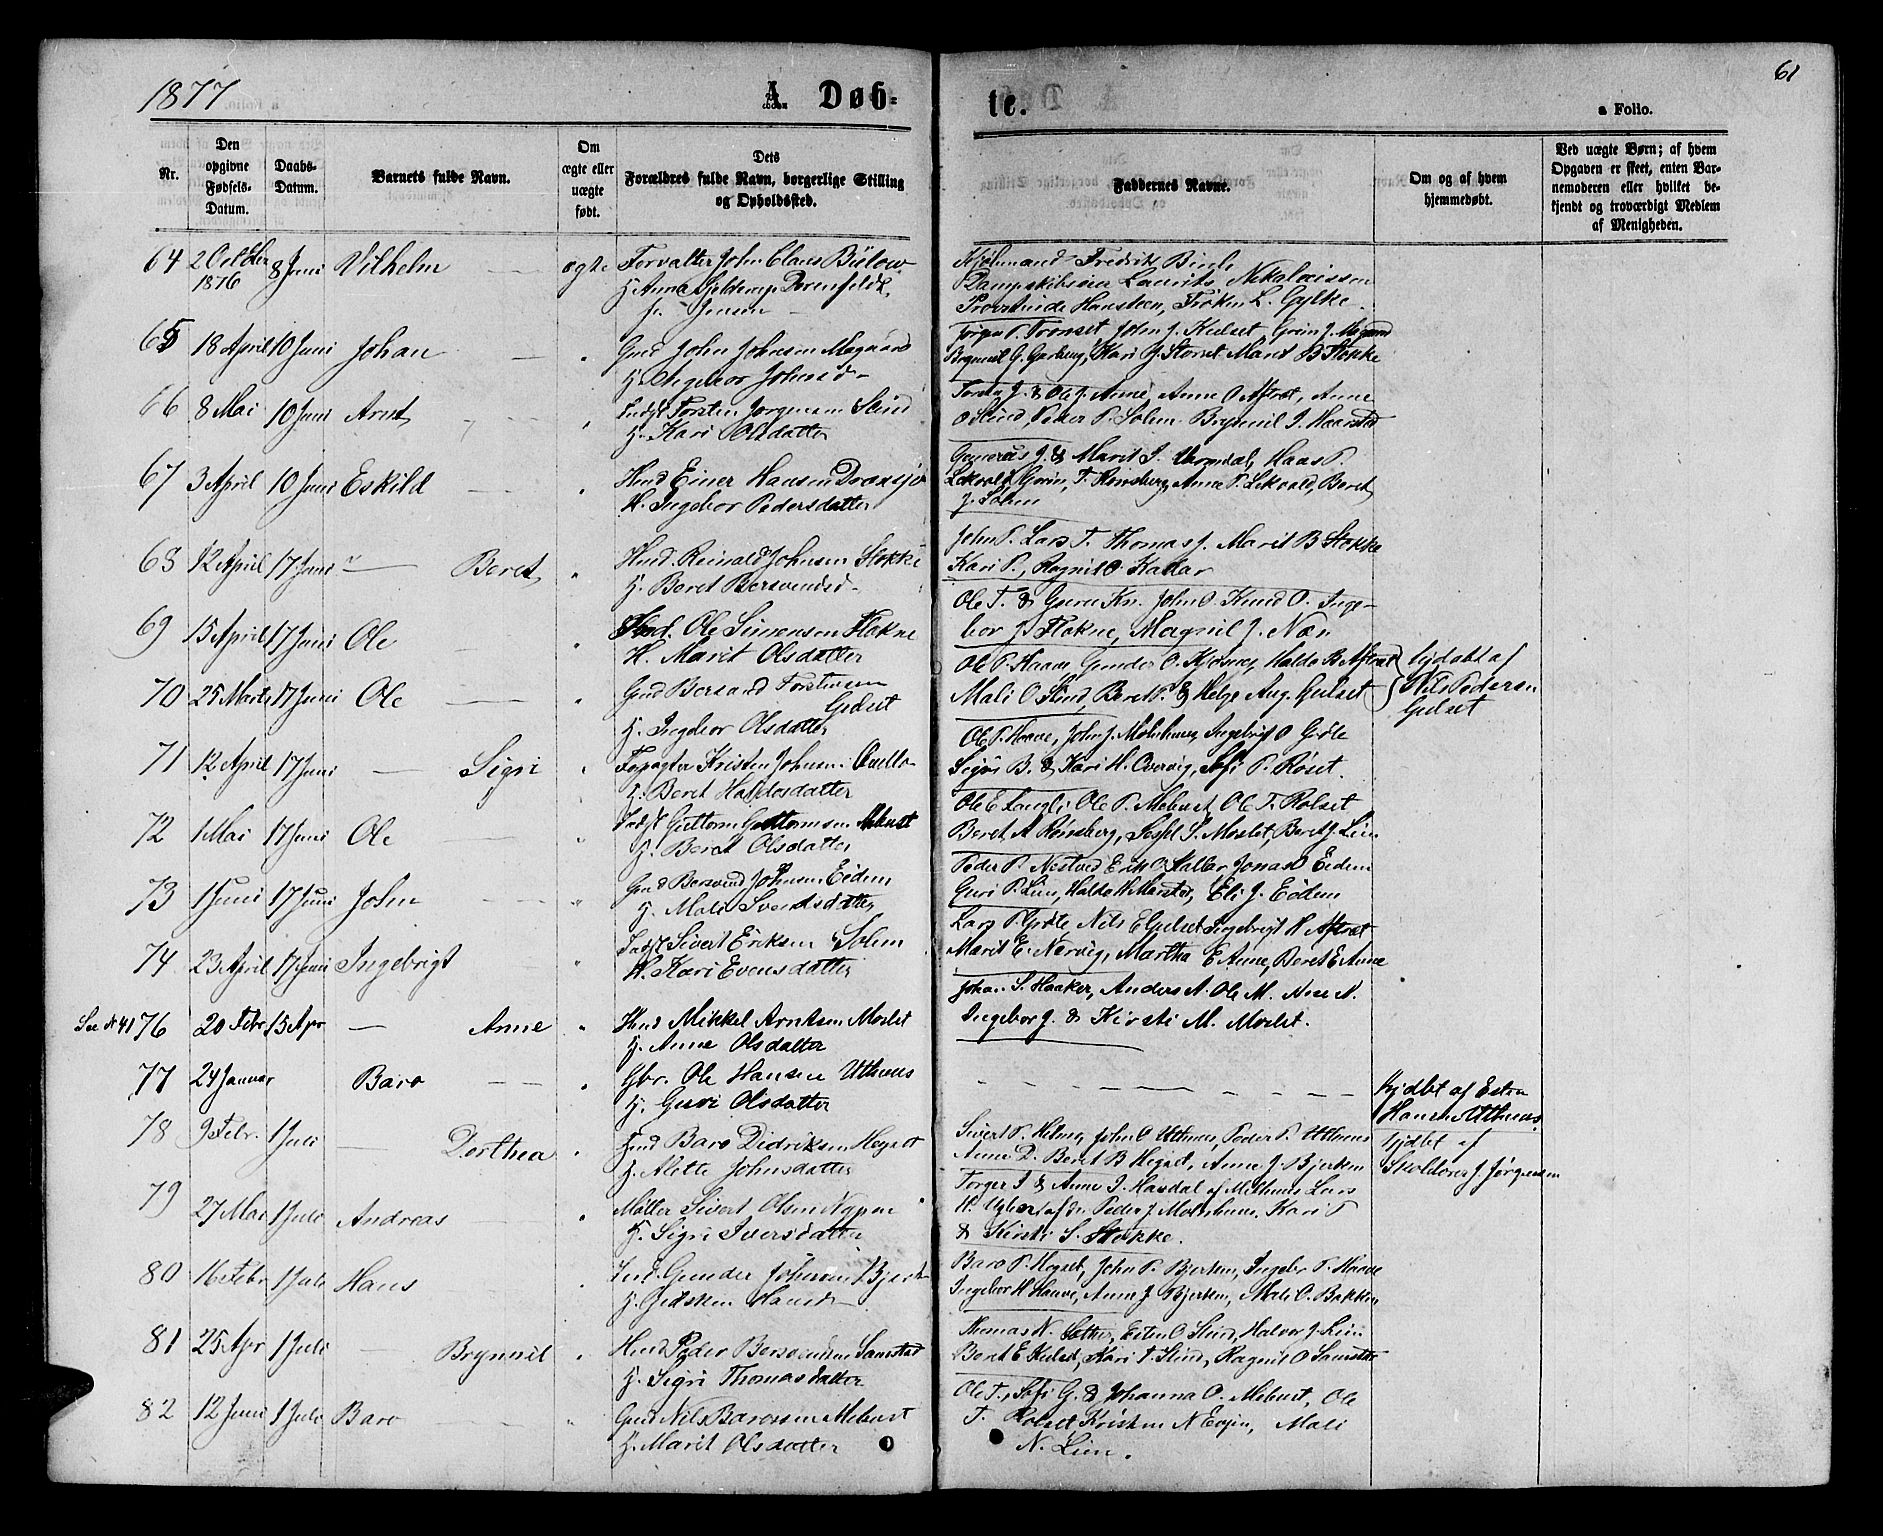 1877
A Døb=
te.
61
a Folio.
Nr.
Den opgivne Fødsels-Datum.
Daabs-Datum.
Barnets fulde Navn.
Om ægte eller uægte født.
Dets Forældres fulde Navn, borgerlige Stilling og Opholdssted.
Faddernes Navne.
Om og af hvem hjemmedøbt.
Ved uægte Børn; af hvem Opgaven er skeet, enten Barnemoderen eller hvilket bekjendt og troværdigt Medlem af Menigheden.
64 2 Octber 1876 8 Juni Vilhelm ægte Forvalter John Claus Bülow
H. Anna Gjelderup Dorenfeldt
f. Jensen
Kjøbmand Fredrik
Laurits Nikolaissen
Hansteen, Frøken L.
65 18 April 10 Juni Johan " Gmd John Johnsen Magaard
H. Ingebor Johnsd
Tronset, John J. Kulset, Goro J. Magaard
Brynnil G. Garberg, Kari J. Storset Marit B Stokke
66 8 Mai 10 Juni Arnt " Indst Torsten Jørgensen Slind
H. Kari Olsdatter
Torsten J. & Ole J. Aune, Anne O Aftret, Anne
O Slind Peder P. Solem Brynnil J. Haarstad
67 3 April 10 Juni Eskild " Hmd Einer Hansen Draxsjø
H. Ingebor Pedersdatter
J. & Marit J. Haas P.
Lekvold, Goro, T. Rønsberg, Anne P. Lekvold, Beret
J. Solem
68 12 April 17 Juni Beret " Hmd. Reinald Johnsen Stokke
H. Beret Bersvendsd
John P. Lars T. Thomas J. Marit B Stokke
Kari P., Ragnil O.
69 15 April 17 Juni Ole " Hmd. Ole Simonsen Flakne
H. Marit Olsdatter
Ole T. & Guru Kn. John O. Knud O. Inge-
bor J. Flakne, Magnil J. Næs
70 25 Marts 17 Juni Ole " Gmd Bersvend Torstensen
Gulset
H. Ingebor Olsdatter
Ole P. Haave, Gunder O. Haldo B Aftret
Mali O Slind, Beret P. & Helge Aug. Gulset
hjdøbt af
Nils Pedersen
Gulset
71 12 April 17 Juni Sigri " Forpagter Kristen Johnsen
H. Beret Haldosdatter
Ole P. Haave, John J. Molnhuus, Ingebrigt O
B. & Kari H. Overvig, Sofi P. Røset.
72 1 Mai 17 Juni Ole " Indst Guttorm Guttormsen Mebust
H. Beret Olsdatter
Ole E Langli Ole P. Mebust, Ole T. Rolset
Beret A Rønsberg, S. Moslet, Beret J. Lien
73 1 Juni 17 Juni John " Gmd Bersvend Johnsen Eidem
H. Mali Svendsdatter
Peder P. Erik O Jonas O Eidem
Guri P. Lien, Haldo H Eli J. Eidem
74 23 April 17 Juni Ingebrigt " Indst Sivert Eriksen Solem
H. Kari Evensdatter
Lars P. Nils E Gulset Ingebrigt H Aftret
Marit E. Nervig, Martha E Aune, Beret E Aune
See N 41 76 20 Febr 15 Apr Anne " Hmd Mikkel Arntsen Moslet
H. Anne Olsdatter
Johan S. Haaker, Anders A. Ole M. N.
Ingebor J. & Kirsti M. Moslet.
77 24 Januar Baro " Gbr. Ole Hansen Uthuus
H. Guri Olsdatter
hjdbt af Esten
Hansen Uthuus
78 9 Febr. 1 Juli Dorthea " Hmd Baro Didriksen Hegset
H. Alette Johnsdatter
Sivert P. John O Uthuus, Peder P. Uthuus
Anne D. Beret B Hegset, Anne J. Bjerken
hjdbt af
Skolelærer J. Jørgensen
79 27 Mai 1 Juli Andreas " Møller Sivert Olsen
H. Sigri Iversdatter
Torger J. & Anne J. Havdal af Melhuus Lars
Peder J. Molnhuus, Kari P
& Kirsti S. Stokke.
80 16 Febr 1 Juli Hans " Ind. Gunder Johnsen Bjerk
H. Gjidsken Hansd
Baro P. Hegset, John P. Bjerken, Ingebor P. Haave
Ingebor H Haave, Anne J Bjerken, Mali O. Bakken
81 25 Apr 1 Juli Brynnil " Hmd Peder Bersvendsen Samstad
H. Sigri Thomasdatter
Thomas N. Sether, Esten O Slind, Halvor J. Lien
Beret E Kulset, Kari T. Slind, Ragnil O Samstad
82 12 Juni 1 Juli Baro " Gmd Nils Baroesen Mebust
H. Marit Olsdatter
Ole T., Sofi G. & Johanna O. Mebust, Ole
T. Rolset Kristen N Evjen, Mali
N. Lien.